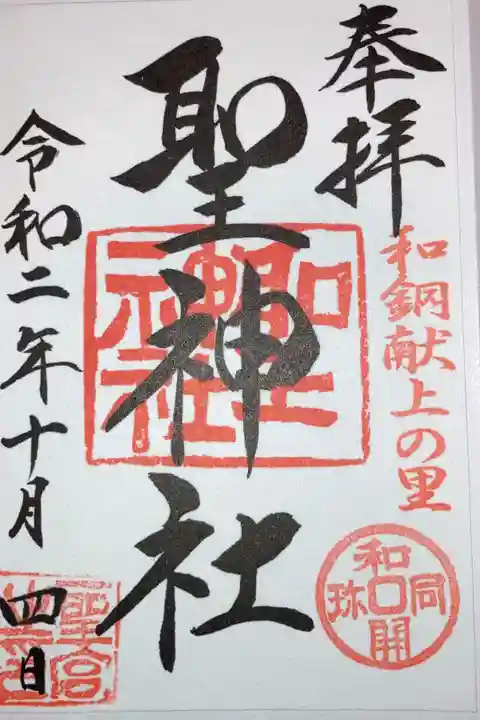 奉拝
和銅献上の里
和同開珎
聖神社
聖神社
令和二年十月四日